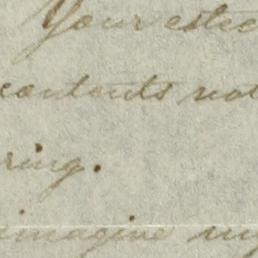 Your estee
contents not
ring.
imagine my